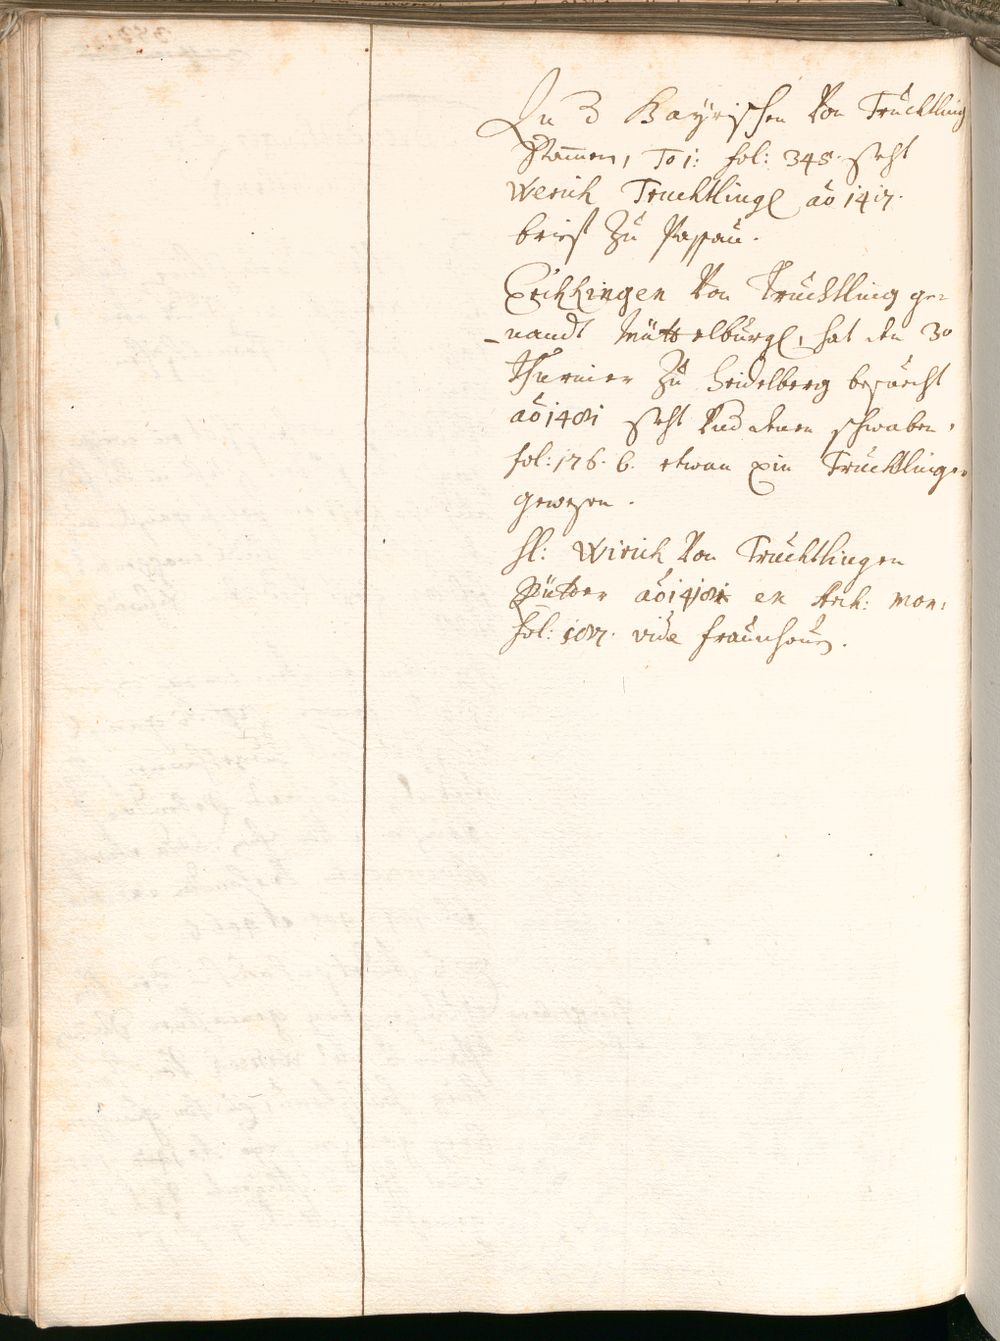 In 3 Bayrischen Von Trüchtling
Stammen, To i: fol: 348. steht
Werich Truchtlingl ão 1417.
brief Zu Passau.
Erchkingen Von Truchtling ge=
nandt Müttelburgl, hat den 30
Thurnier Zu Heidelberg besuecht
ão 1481 steht Und denen schwaben,
fol: 176. b. etwan ein Trüchtlinger
gewesen.
H: Wirich Von Trüchtlingen
Rütter ão 1481 ex Arch: mon:
fol: 187. vide fraunhoven.